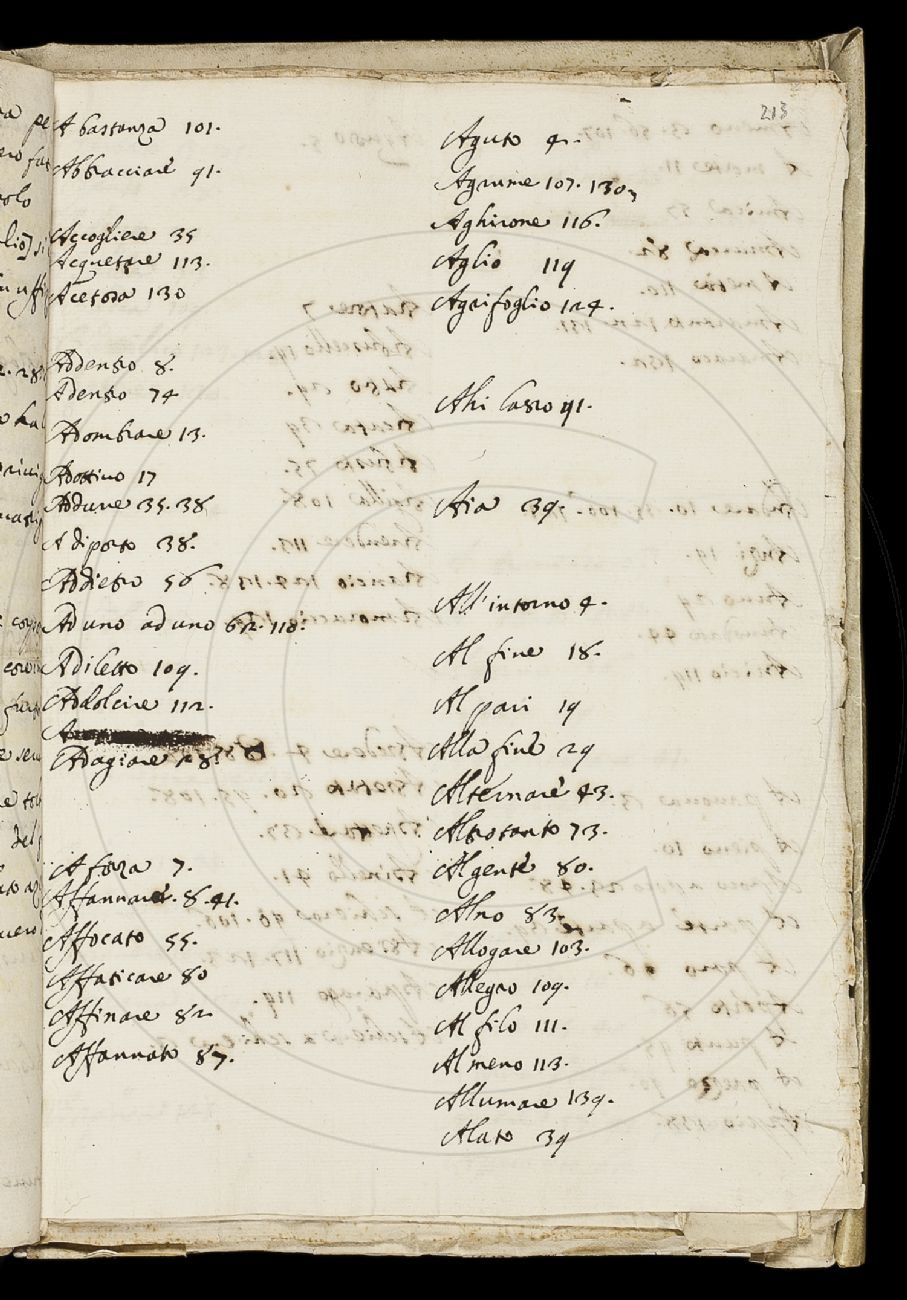 213
A bastanza 101.
Abbracciare 91.
Accogliere 35
Acquetare 113.
Acetosa 130
Addentro 8.
Adentro 74
Adombrare 13.
Adottivo 17
Addurre 35. 38
A diporto 38.
Addietro 56
Ad uno ad uno 62. 118.
A diletto 109.
Addolcire 112.
Adagiare
A forza 7.
Affannare. 8. 41.
Affocato 55.
Affaticare 80
Affinare 82
Affannato 87.
Aguto 4.
Agrume 107. 130
Aghirone 116.
Aglio 119
Agrifoglio 124.
Ahi lasso 91.
Aia 39.
All'intorno 4.
Al fine 18.
Al pari 19
Alla fine 29
Alternare 43.
Altrotanto 73.
Algente 80.
Alno 83.
Allogare 103.
Allegro 109.
Al filo 111.
Almeno 113.
Allumare 139.
Alato 39